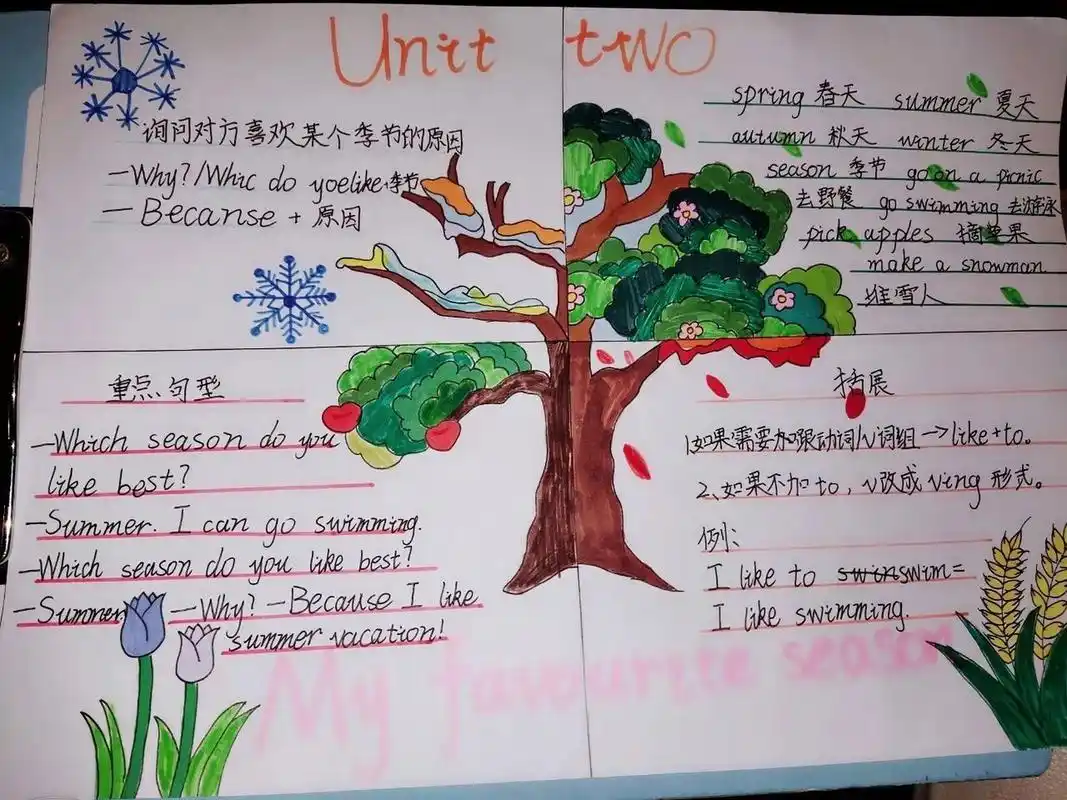 Unit two
询问对方喜欢某个季节的原因
—Why?/Whic do yoelike+季节
— Becanse + 原因
spring 春天 summer 夏天
autumn 秋天 winter 冬天
season 季节 go on a picnic
去野餐 go swimming 去游泳
pick apples 摘苹果
make a snowman
堆雪人
重点句型
—Which season do you
like best?
—Summer. I can go swimming.
—Which season do you like best?
—Summer —Why? —Because I like
summer vacation!
拓展
1.如果需要加跟动词/v词组→like+to。
2.如果不加to,v改成ving形式。
例:
I like to swim=
I like swimming.
My favourite season